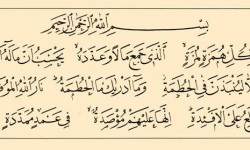 بِسْمِ اللَّهِ الرَّحْمَٰنِ الرَّحِيمِ
كُلِّ هُمَزَةٍ لُمَزَةٍ الَّذِي جَمَعَ مَالًا وَعَدَّدَهُ يَحْسَبُ أَنَّ مَالَهُ
لَيُنْبَذَنَّ فِي الْحُطَمَةِ وَمَا أَدْرَاكَ مَا الْحُطَمَةُ نَارُ اللَّهِ
عَلَى الْأَفْئِدَةِ إِنَّهَا عَلَيْهِمْ مُؤْصَدَةٌ فِي عَمَدٍ مُمَدَّدَةٍ